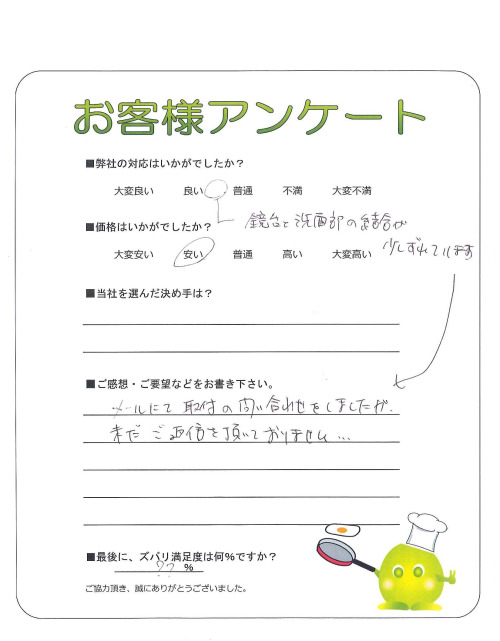 お客様アンケート
■弊社の対応はいかがでしたか？
大変良い 良い 普通 不満 大変不満
■価格はいかがでしたか？
鏡台と洗面部の結合が
少しずれています
大変安い 安い 普通 高い 大変高い
■当社を選んだ決め手は？
■ご感想・ご要望などをお書き下さい。
メールにて取付の問い合わせをしましたが、
未だご返信を頂いておりません…
■最後に、ズバリ満足度は何％ですか？
?? %
ご協力頂き、誠にありがとうございました。